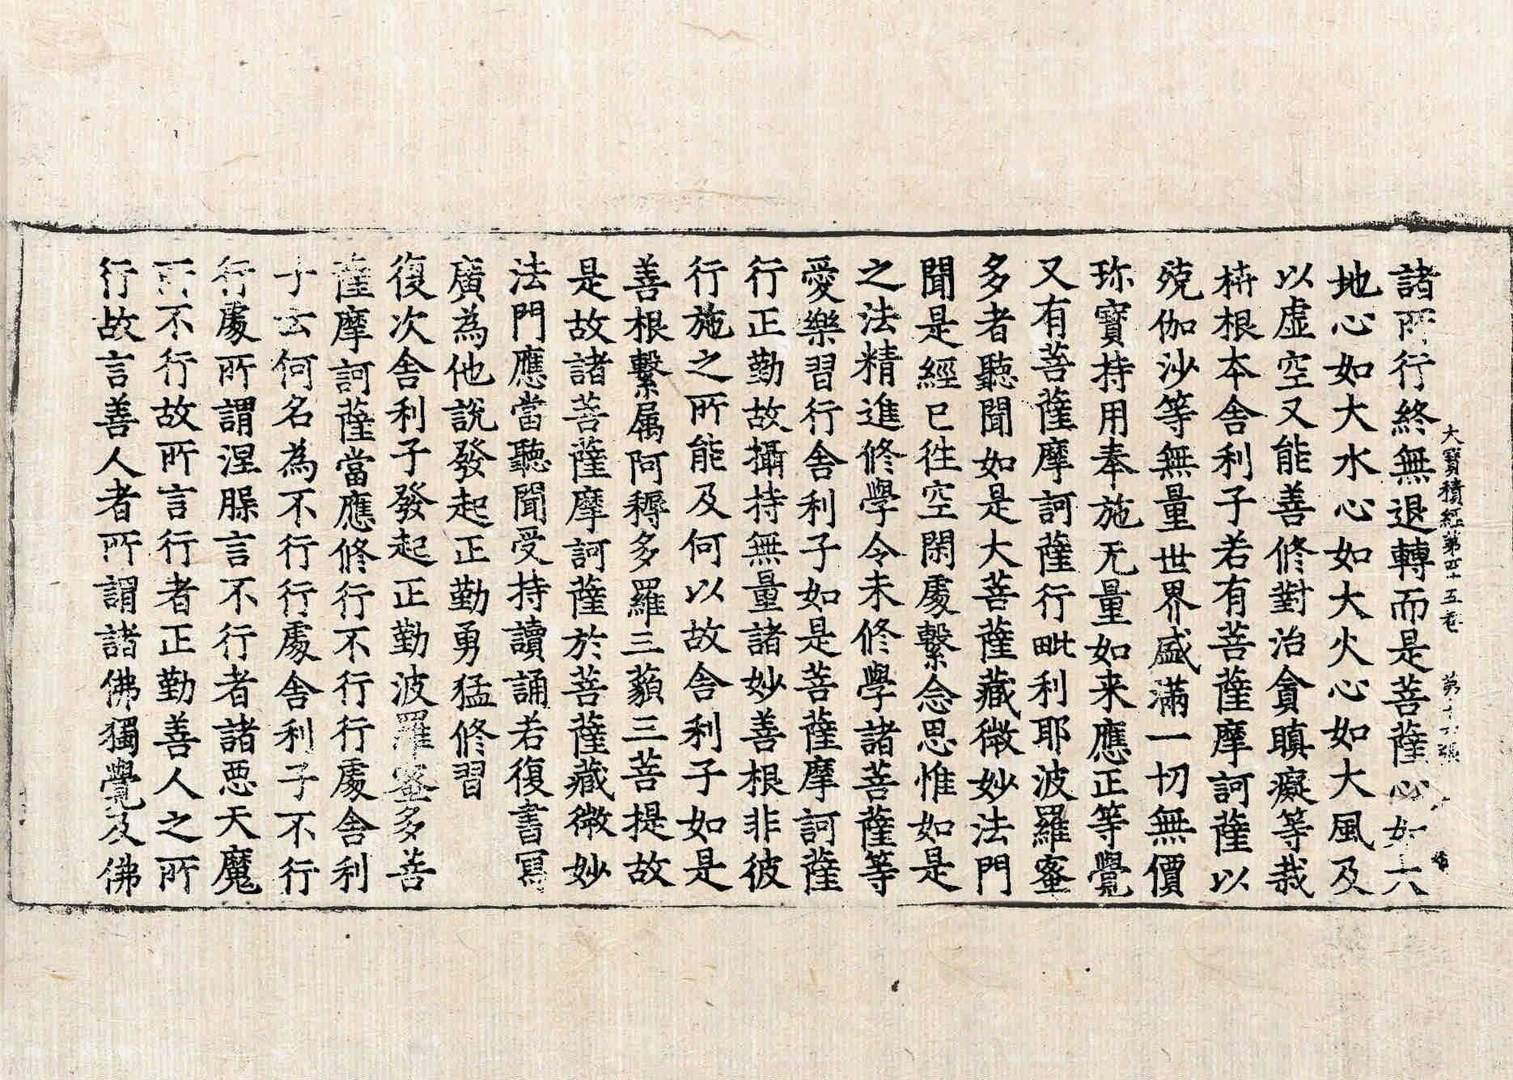 大寶積經第四十五卷 第十六張
諸所行終無退轉而是菩薩心如大
地心如大水心如大火心如大風及
以虛空又能善修對治貪瞋癡等栽
枿根本舍利子若有菩薩摩訶薩以
殑伽沙等無量世界盛滿一切無價
珎寶持用奉施无量如来應正等覺
又有菩薩摩訶薩行毗利耶波羅蜜
多者聽聞如是大菩薩藏微妙法門
聞是經已徃空閑處繫念思惟如是
之法精進修學令未修學諸菩薩等
愛樂習行舍利子如是菩薩摩訶薩
行正勤故攝持無量諸妙善根非彼
行施之所能及何以故舍利子如是
善根繫属阿耨多羅三藐三菩提故
是故諸菩薩摩訶薩於菩薩藏微妙
法門應當聽聞受持讀誦若復書寫
廣為他說發起正勤勇猛修習
復次舍利子發起正勤波羅蜜多菩
薩摩訶薩當應修行不行行處舍利
子云何名為不行行處舍利子不行
行處所謂涅槃言不行者諸惡天魔
所不行故所言行者正勤善人之所
行故言善人者所謂諸佛獨覺及佛